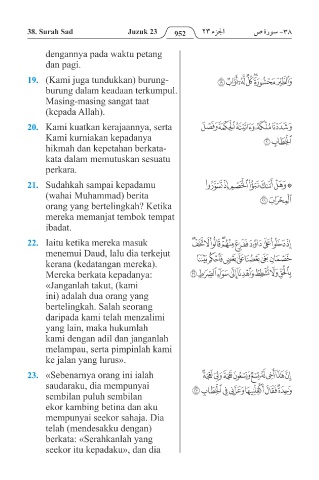 38. Surah Sad Juzuk 23 952 الجزء ٢٣ ٣٨- سورة ص
dengannya pada waktu petang
dan pagi.
19. (Kami juga tundukkan) burung-
burung dalam keadaan terkumpul.
Masing-masing sangat taat
(kepada Allah).
وَٱلطَّيۡرَ مَحۡشُورَةٗۖ كُلّٞ لَّهُۥٓ أَوَّابٞ
20. Kami kuatkan kerajaannya, serta
Kami kurniakan kepadanya
hikmah dan kepetahan berkata-
kata dalam memutuskan sesuatu
perkara.
وَشَدَدۡنَا مُلۡكَهُۥ وَءَاتَيۡنَٰهُ ٱلۡحِكۡمَةَ وَفَصۡلَ
ٱلۡخِطَابِ
21. Sudahkah sampai kepadamu
(wahai Muhammad) berita
orang yang bertelingkah? Ketika
mereka memanjat tembok tempat
ibadat.
۞ وَهَلۡ أَتَىٰكَ نَبَؤُاْ ٱلۡخَصۡمِ إِذۡ تَسَوَّرُواْ
ٱلۡمِحۡرَابَ
22. Iaitu ketika mereka masuk
menemui Daud, lalu dia terkejut
kerana (kedatangan mereka).
Mereka berkata kepadanya:
«Janganlah takut, (kami
ini) adalah dua orang yang
bertelingkah. Salah seorang
daripada kami telah menzalimi
yang lain, maka hukumlah
kami dengan adil dan janganlah
melampau, serta pimpinlah kami
ke jalan yang lurus».
إِذۡ دَخَلُواْ عَلَىٰ دَاوُۥدَ فَفَزِعَ مِنۡهُمۡۖ قَالُواْ لَا تَخَفۡۖ
خَصۡمَانِ بَغَىٰ بَعۡضُنَا عَلَىٰ بَعۡضٖ فَٱحۡكُم بَيۡنَنَا
بِٱلۡحَقِّ وَلَا تُشۡطِطۡ وَٱهۡدِنَآ إِلَىٰ سَوَآءِ ٱلصِّرَٰطِ
23. «Sebenarnya orang ini ialah
saudaraku, dia mempunyai
sembilan puluh sembilan
ekor kambing betina dan aku
mempunyai seekor sahaja. Dia
telah (mendesakku dengan)
berkata: «Serahkanlah yang
seekor itu kepadaku», dan dia
إِنَّ هَٰذَآ أَخِي لَهُۥ تِسۡعٞ وَتِسۡعُونَ نَعۡجَةٗ وَلِيَ نَعۡجَةٞ
وَٰحِدَةٞ فَقَالَ أَكۡفِلۡنِيهَا وَعَزَّنِي فِي ٱلۡخِطَابِ